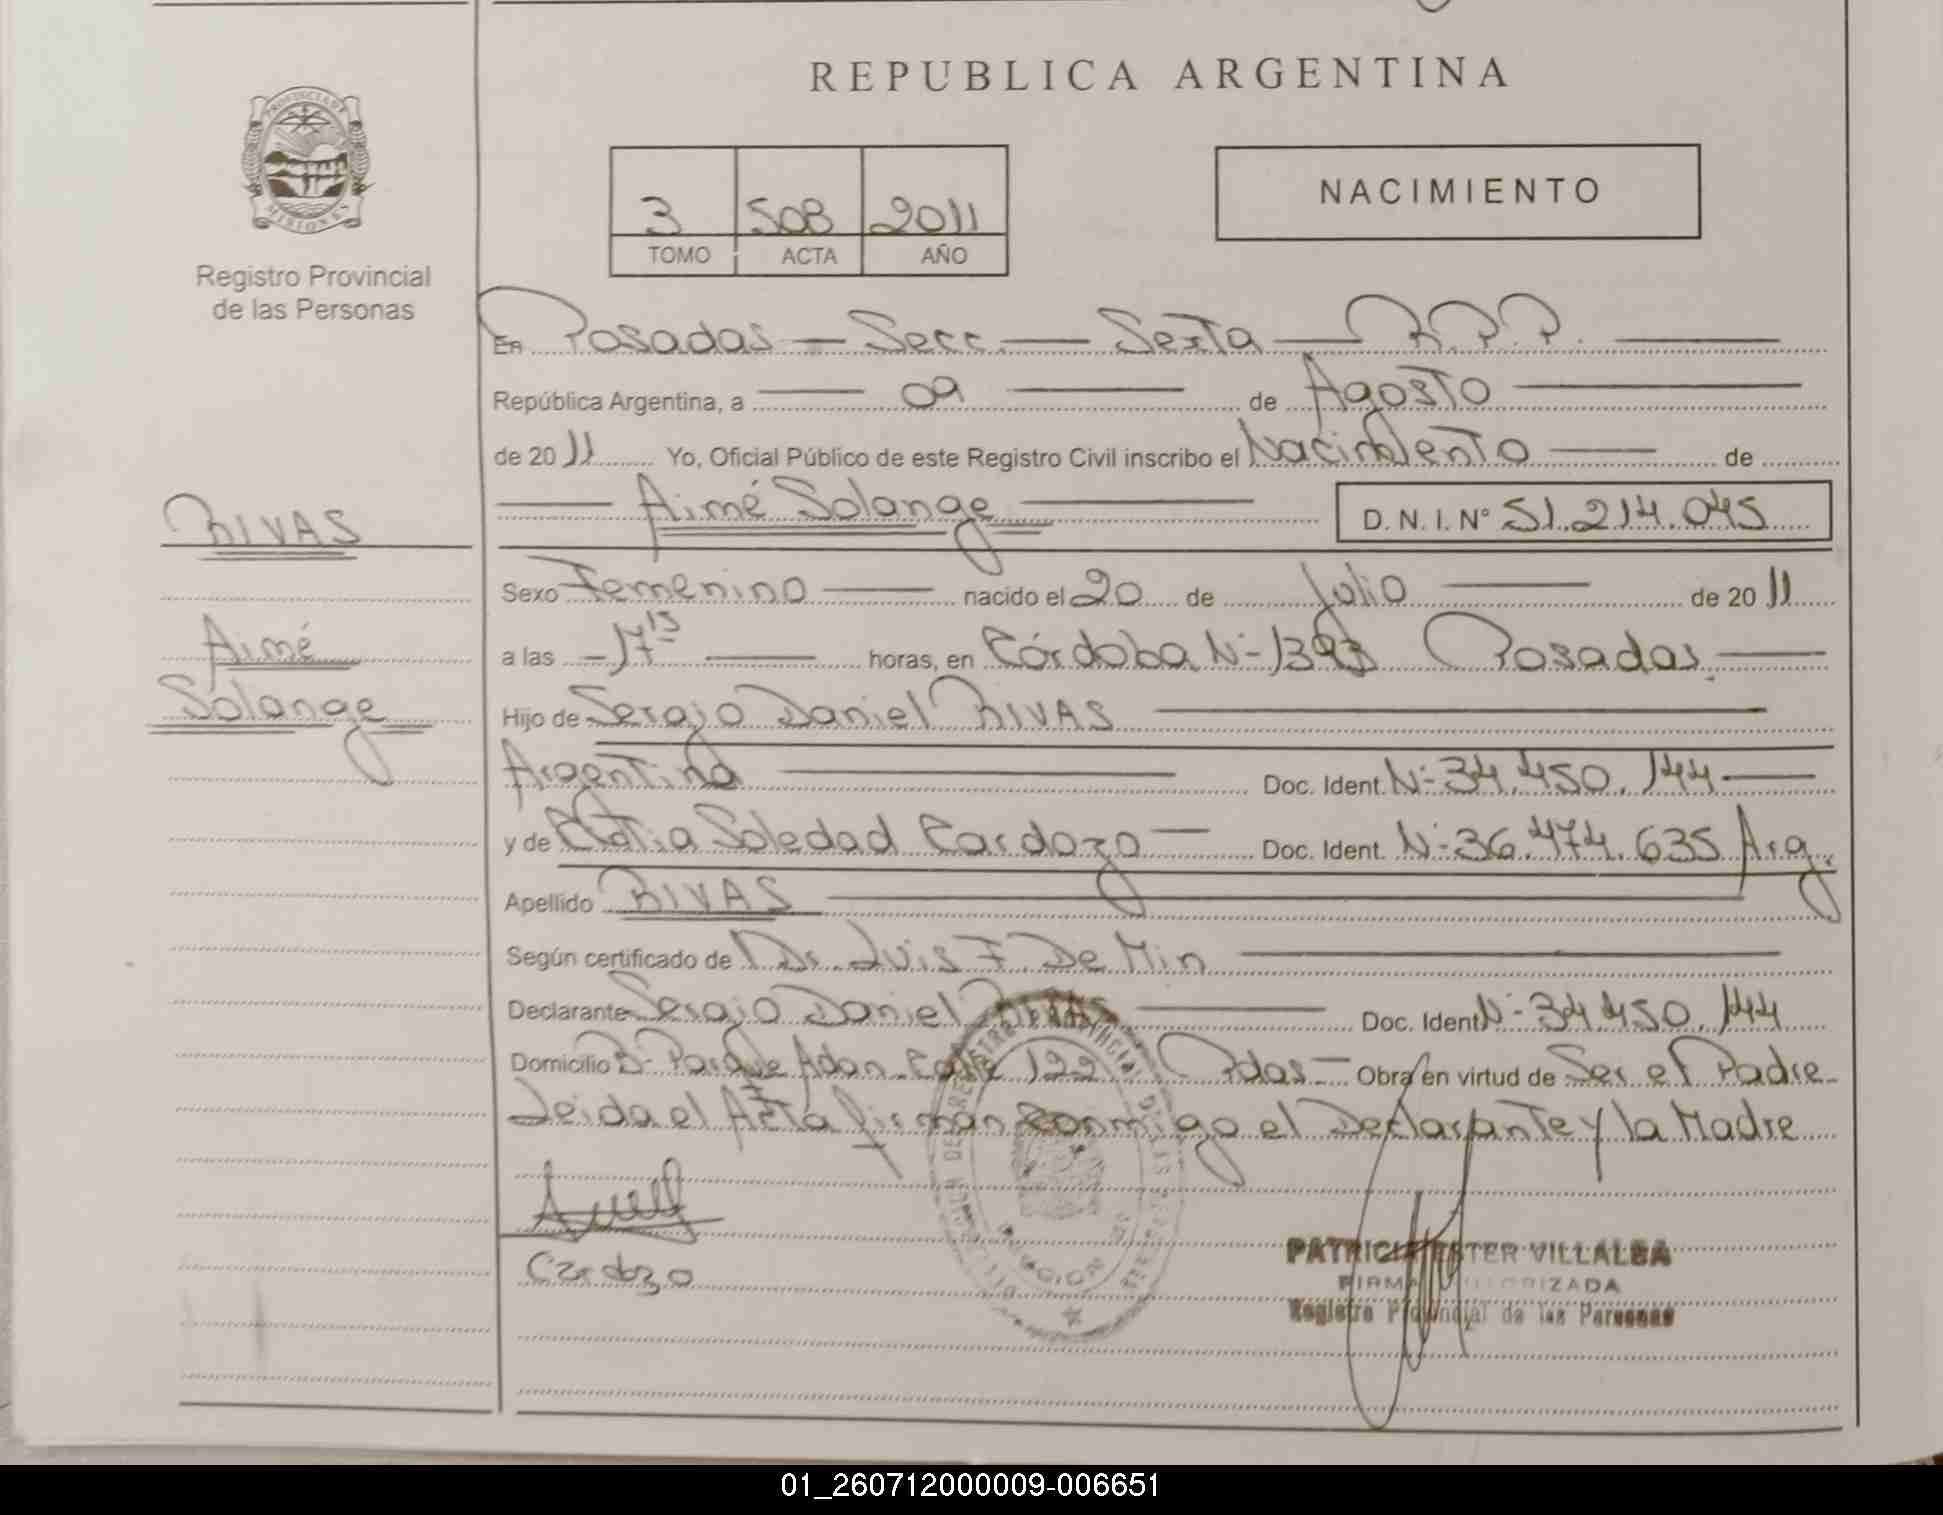 REPUBLICA ARGENTINA
PROVINCIA DE
MISIONES
Registro Provincial
de las Personas
3 508 2011
TOMO ACTA AÑO
NACIMIENTO
En Posadas — Secc. — Sexta — R.P.P. —
República Argentina, a — 09 — de Agosto —
de 2011 Yo, Oficial Público de este Registro Civil inscribo el Nacimiento — de
— Aimé Solange — D. N. I. N° 51.214.045
RIVAS
Aimé
Solange
Sexo Femenino — nacido el 20 de Julio — de 2011
a las - 17 15 — horas, en Córdoba N- 1393 Posadas. —
Hijo de Sergio Daniel RIVAS —
Argentina — Doc. Ident. N- 34.450.144 —
y de Soledad Cardozo — Doc. Ident. N- 36.474.635 Arg.
Apellido RIVAS —
Según certificado de Dr. Luis F. De Min —
Declarante Sergio Daniel RIVAS — Doc. Ident N- 34.450.144
Domicilio B- Parque Adan Calle 122 Pdas — Obra en virtud de Ser el Padre -
Leida el Acta firman conmigo el Declarante y la Madre
Cardozo
PATRICIA ESTER VILLALBA
FIRMA AUTORIZADA
Registro Provincial de las Personas
01_260712000009-006651